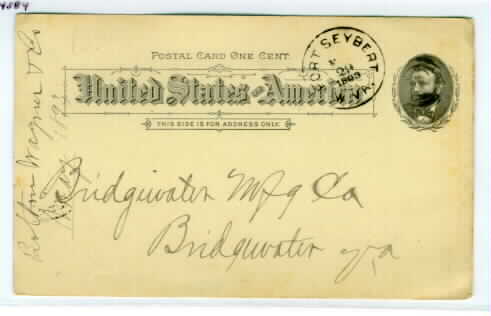 POSTAL CARD ONE CENT.
United States of America
THIS SIDE IS FOR ADDRESS ONLY.
FORT SEYBERT
W.VA.
Bridgewater Mfg Co
Bridgewater Va
Wagner & Co